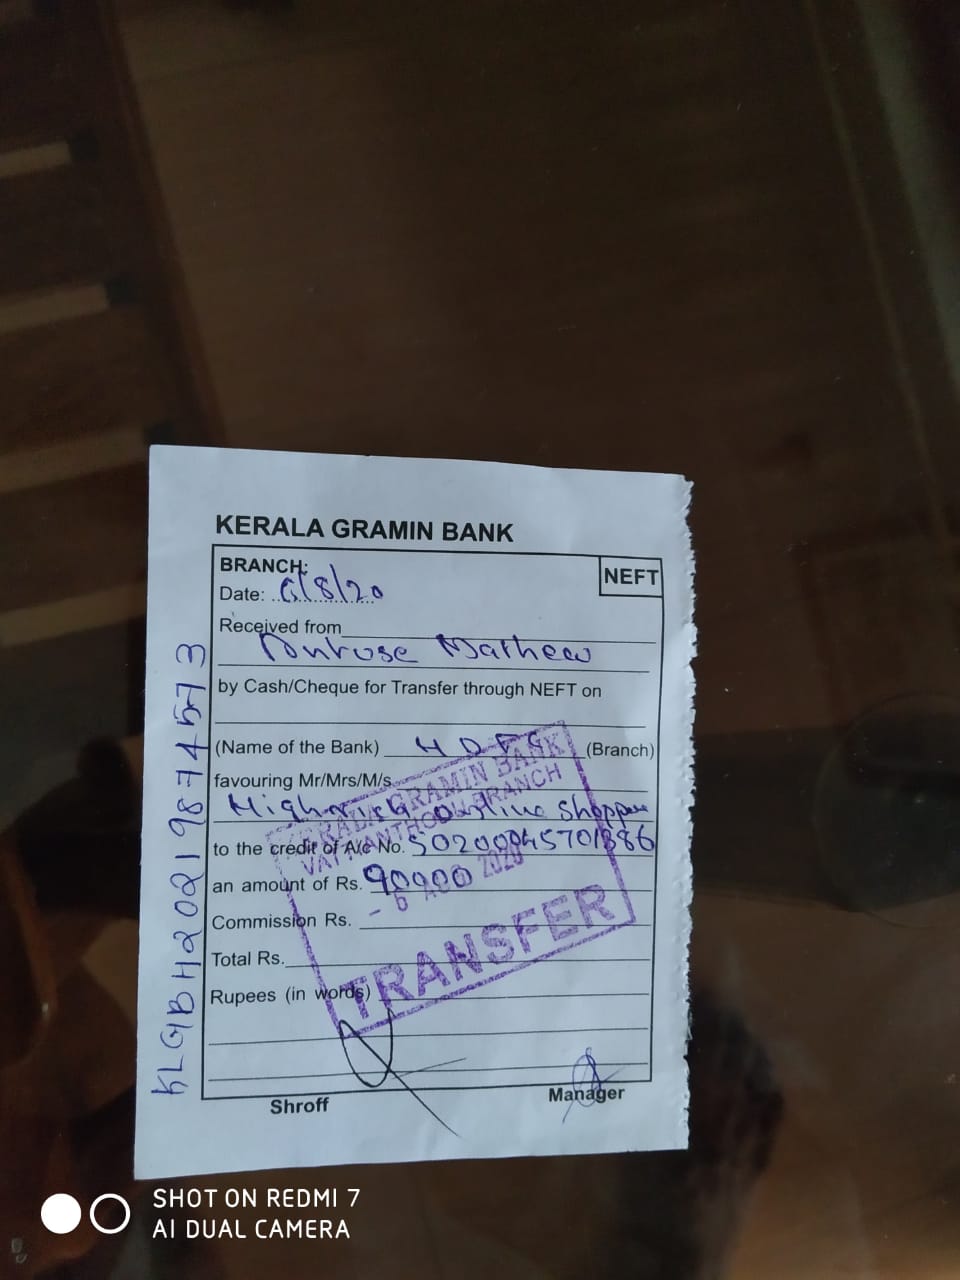 KERALA GRAMIN BANK
BRANCH:
NEFT
Date: 6/8/20
Received from
Mathew
by Cash/Cheque for Transfer through NEFT on
(Name of the Bank) HDFC (Branch)
favouring Mr/Mrs/M/s.
Online Shoppee
to the credit of A/c No. 50200045701386
an amount of Rs. 90900
Commission Rs.
Total Rs.
Rupees (in words)
Shroff
Manager
KERALA GRAMIN BANK
BRANCH
- 6 AUG 2020
TRANSFER
KLGBH20219874573
SHOT ON REDMI 7
AI DUAL CAMERA